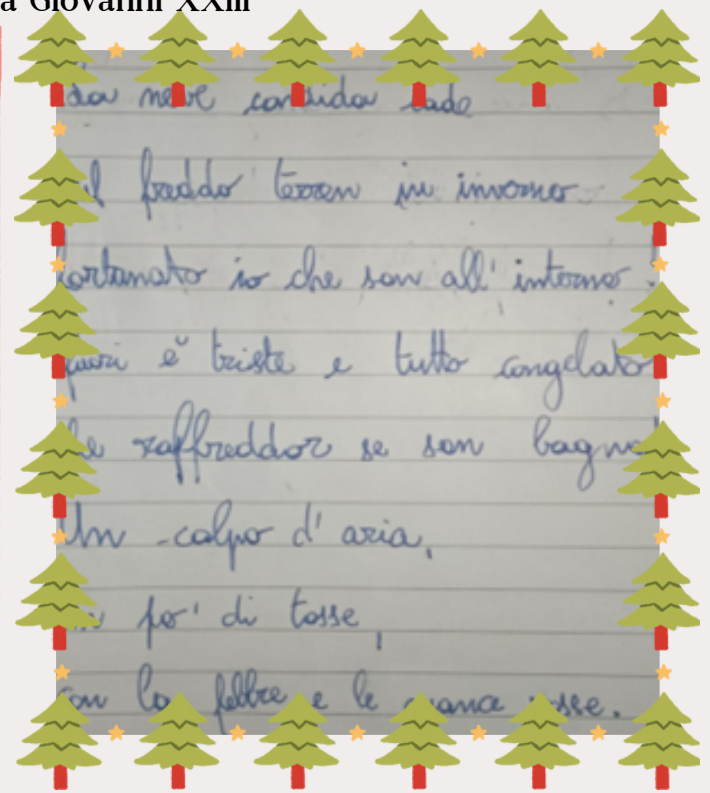 a Giovanni XXIII
La neve candida cade
freddo terren in inverno
fortunato io che son all' interno.
fuori è triste e tutto congelato
che raffreddor se son bagna
Un colpo d'aria,
un po' di tosse,
con la febbre e le guance rosse.